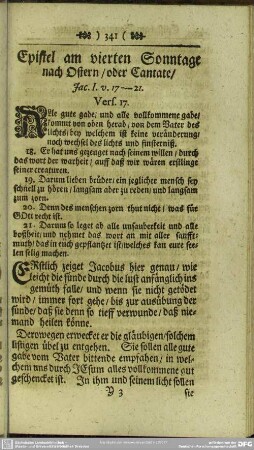 ) 341 (
Epistel am vierten Sonntage
nach Ostern/ oder Cantate/
Jac. I. v. 17—21.
Vers. 17.
Alle gute gabe, und alle vollkommene gabe/
kommt von oben herab, von dem Vater des
lichts, bey welchem ist keine veränderung/
noch wechsel des lichts und finsterniß.
18. Er hat uns gezeuget nach seinem willen/ durch
das wort der warheit/ auff daß wir wären erstlinge
seiner creaturen.
19. Darum lieben brüder, ein jeglicher mensch sey
schnell zu hören/ langsam aber zu reden/ und langsam
zum zorn.
20. Denn des menschen zorn thut nicht/ was für
GOtt recht ist.
21. Darum so leget ab alle unsauberkeit und alle
boßheit, und nehmet das wort an mit aller sanfft-
muth/ das in euch gepflantzet ist/ welches kan eure see-
len selig machen.
ERstlich zeiget Jacobus hier genau/ wie
leicht die sünde durch die lust anfänglich ins
gemüth falle/ und wenn sie nicht getödet
wird/ immer fort gehe/ bis zur ausübung der
sünde/ daß sie denn so tieff verwunde/ daß nie-
mand heilen könne.
Derowegen erwecket er die gläubigen/ solchem
listigen übel zu entgehen. Sie sollen alle gute
gabe vom Vater bittende empfahen/ in wel-
chem uns durch JEsum alles vollkommene gut
geschencket ist. In ihm und seinem licht sollen
Y 3 sie